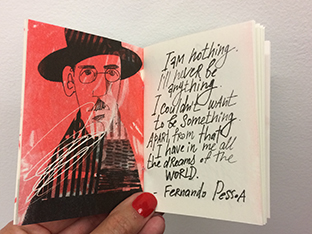 I am nothing.
I'll never be
anything.
I couldn't want
to be something.
APART from that
I have in me all
the dreams of the
WORLD.
- Fernando Pessoa